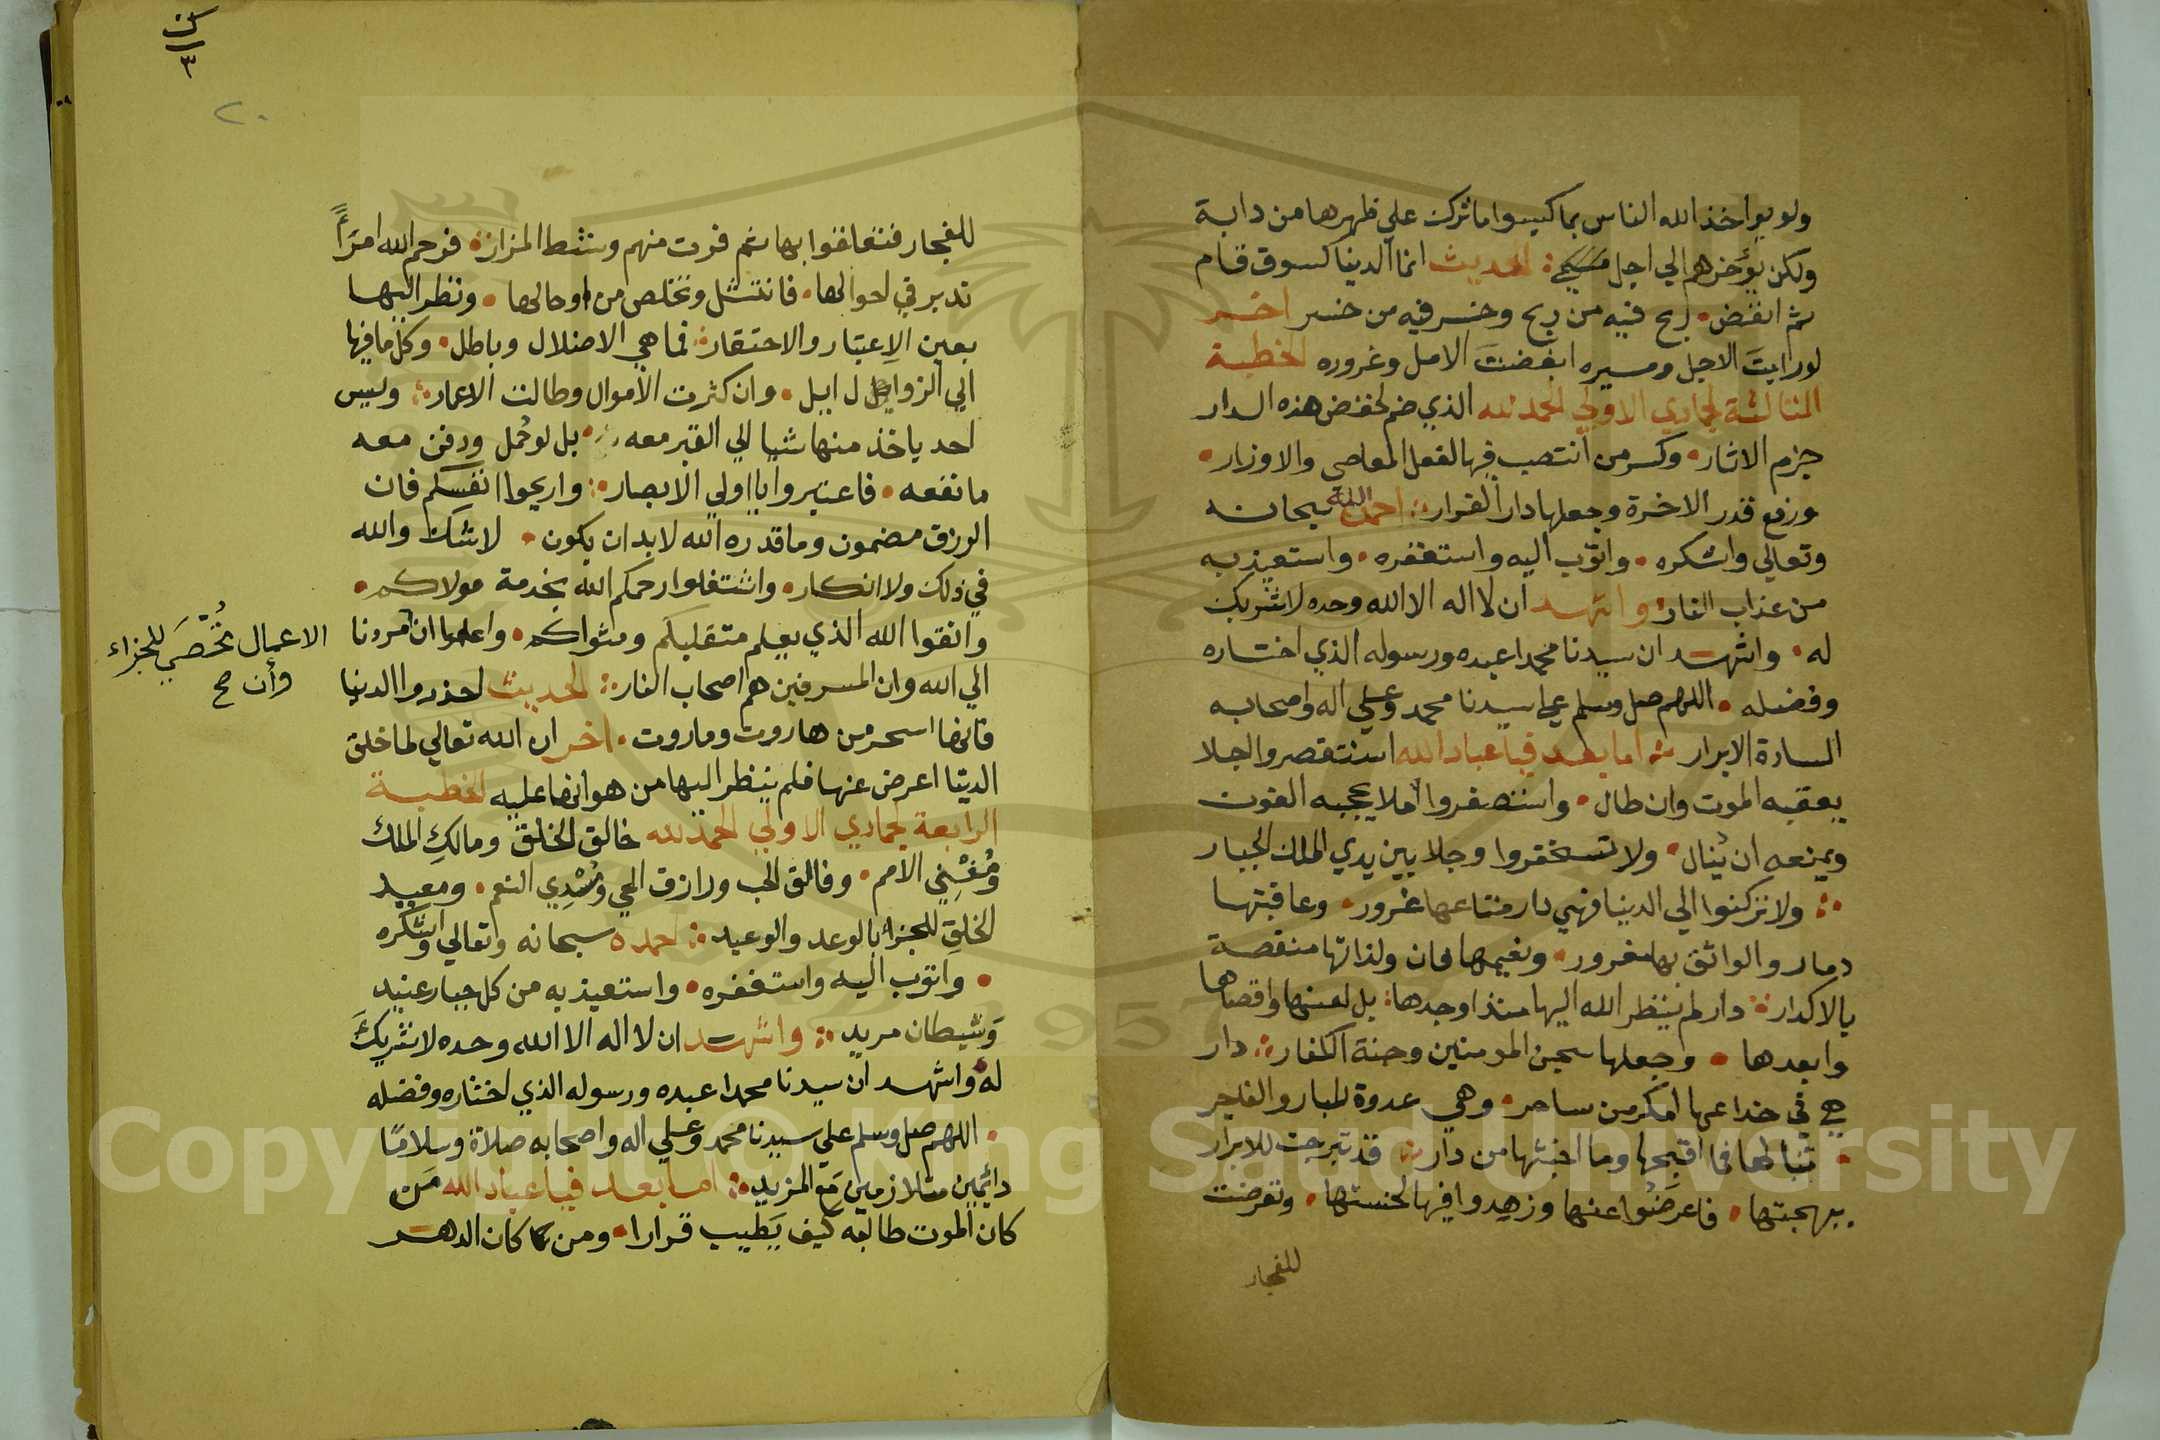 ولو يواخذ الله الناس بما كسبوا ما ترك علي ظهرها من دابة
ولكن يؤخرهم الي اجل مسمي الحديث انما الدنيا كسوق قام
ثم انفض ربح فيه من ربح وخسر فيه من خسر اخر
لو رايت الاجل ومسيره ابغضت الامل وغروره الخطبة
الثالثة لجمادي الاولي الحمد لله الذي ضم لخفض هذه الدار
جزم الاثار وكسر من انتصب فيها لفعل المعاصي والاوزار
ورفع قدر الاخرة وجعلها دار القرار احمد الله سبحانه
وتعالي واشكره واتوب اليه واستغفره واستعيذ به
من عذاب النار واشهد ان لا اله الا الله وحده لا شريك
له واشهد ان سيدنا محمدا عبده ورسوله الذي اختاره
وفضله اللهم صل وسلم علي سيدنا محمد وعلي اله واصحابه
السادة الابرار اما بعد فيا عباد الله استقصروا اجلا
يعقبه الموت وان طال واستصغروا املا يحجبه الفوت
ويمنعه ان ينال ولا تستحقروا وجلا بين يدي الملك الجبار
ولا تركنوا الي الدنيا فهي دار متاعها غرور وعاقبتها
دمار والواثق بها مغرور ونعيمها فان ولذاتها منغصة
بالاكدار دار لم ينظر الله اليها منذ اوجدها بل لعنها واقصاها
وابعدها وجعلها سجن المومنين وجنة الكفار دار
هي في خداعها امكر من ساحر وهي عدوة للبار والفاجر
تبا لها فما اقبحها وما اخبثها من دار قد تبرجت للابرار
ببهجتها فاعرضوا عنها وزهدوا فيها لخستها وتعرضت
للفجار
ك
٣
٢٠
للفجار فتعلقوا بها ثم فرت منهم وشط المزار فرحم الله امرأً
تدبر في احوالها فانتشل وتخلص من اوحالها ونظر اليها
بعين الاعتبار والاحتقار فما هي الا ضلال وباطل وكل ما فيها
الي الزوايل ل ايل وان كثرت الاموال وطالت الاعمار وليس
احد ياخذ منها شيا الي القبر معه بل لو حُمل ودفن معه
ما نفعه فاعتبروا يا اولي الابصار واريحوا انفسكم فان
الرزق مضمون وما قدره الله لا بد ان يكون لا شك والله
في ذلك ولا انكار واشتغلوا رحمكم الله بخدمة مولاكم
واتقوا الله الذي يعلم متقلبكم ومثواكم واعلموا ان مردنا
الي الله وان المسرفين هم اصحاب النار الحديث احذروا الدنيا
فانها اسحر من هاروت وماروت اخر ان الله تعالي لما خلق
الدنيا اعرض عنها فلم ينظر اليها من هوانها عليه الخطبة
الرابعة لجمادي الاولي الحمد لله خالق الخلق ومالك الملك
ومُفْنِي الامم وفالق الحب ورازق الحي ومُسْدِي النعم ومعيد
الخلق للجزا بالوعد والوعيد احمده سبحانه وتعالي واشكره
واتوب اليه واستغفره واستعيذ به من كل جبار عنيد
وشيطان مريد واشهد ان لا اله الا الله وحده لا شريك
له واشهد ان سيدنا محمدا عبده ورسوله الذي اختاره وفضله
اللهم صل وسلم علي سيدنا محمد وعلي اله واصحابه صلاة وسلاما
دائمين متلازمين مع المزيد اما بعد فيا عباد الله من
كان الموت طالبه كيف يطيب قرارا ومن كان الدهر
الاعمال تُحْصَي للجزاء
وأن صح
Copyright © King Saud University
1957